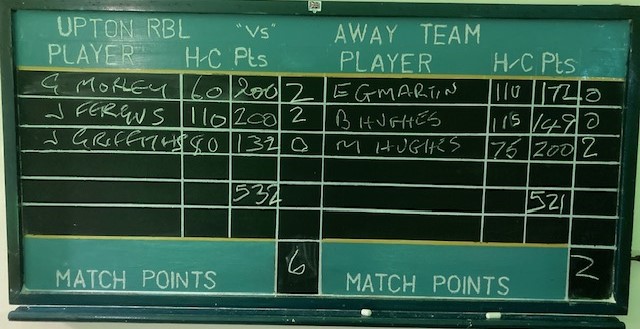 UPTON RBL "Vs" AWAY TEAM
PLAYER H/C Pts PLAYER H/C Pts
G MORLEY 60 200 2 E G MARTIN 110 172 0
J FERGUS 110 200 2 B HUGHES 115 149 0
J GRIFFITHS 80 132 0 M HUGHES 75 200 2
532 521
MATCH POINTS 6 MATCH POINTS 2